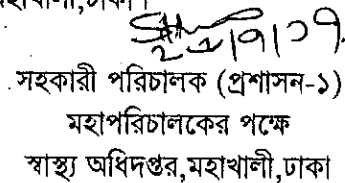 মহাখালী,ঢাকা।
সহকারী পরিচালক (প্রশাসন-১)
মহাপরিচালকের পক্ষে
স্বাস্থ্য অধিদপ্তর,মহাখালী,ঢাকা